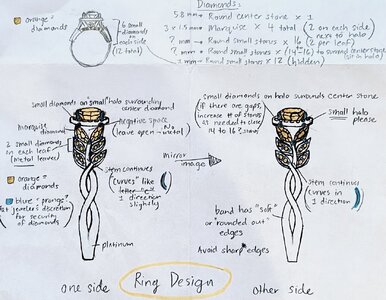 orange = diamonds
6 small
diamonds
on
each side
(12 total)
Diamonds:
5.8 mm → Round center stone × 1
3 × 1.5mm → Marquise × 4 total (2 on each side)
next to halo
mm → Round small stones × 16 (2 per leaf)
mm → Round small stones × (14-16) → surround center stone
mm → Round small stones × 12 (hidden)
small diamonds on "small" halo surrounding
center diamond
marquise
diamond
negative space
leave open - No
metal
2 small diamonds
in each leaf
(metal leaves)
orange =
diamonds
blue = "prongs"
at jeweler's discretion
for security
of diamonds
Stem continues
("curves" like
letter
1 direction
slightly
platinum
one side
mirror
image
small diamonds on halo surrounds center stone
(if there are gaps,
increase # of stones
as needed to close
14 to 16 ? stones)
small halo
please
Stem continues
(curves in
1 direction)
band has "soft"
or "rounded out"
edges
Avoid sharp edges
Ring Design
other side